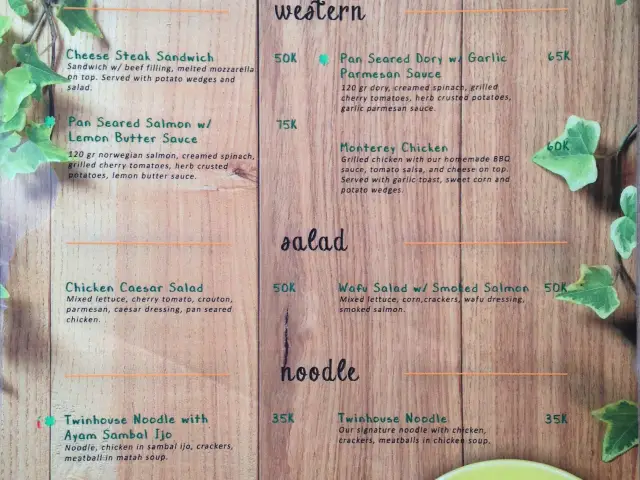 western
Cheese Steak Sandwich 50K
Sandwich w/ beef filling, melted mozzarella
on top. Served with potato wedges and
salad.
Pan Seared Salmon w/ 75K
Lemon Butter Sauce
120 gr norwegian salmon, creamed spinach,
grilled cherry tomatoes, herb crusted
potatoes, lemon butter sauce.
Pan Seared Dory w/ Garlic 65K
Parmesan Sauce
120 gr dory, creamed spinach, grilled
cherry tomatoes, herb crusted potatoes,
garlic parmesan sauce.
Monterey Chicken 60K
Grilled chicken with our homemade BBQ
sauce, tomato salsa, and cheese on top.
Served with garlic toast, sweet corn and
potato wedges.
salad
Chicken Caesar Salad 50K
Mixed lettuce, cherry tomato, crouton,
parmesan, caesar dressing, pan seared
chicken.
Wafu Salad w/ Smoked Salmon 50K
Mixed lettuce, corn,crackers, wafu dressing,
smoked salmon.
noodle
Twinhouse Noodle with 35K
Ayam Sambal Ijo
Noodle, chicken in sambal ijo, crackers,
meatball in matah soup.
Twinhouse Noodle 35K
Our signature noodle with chicken,
crackers, meatballs in chicken soup.